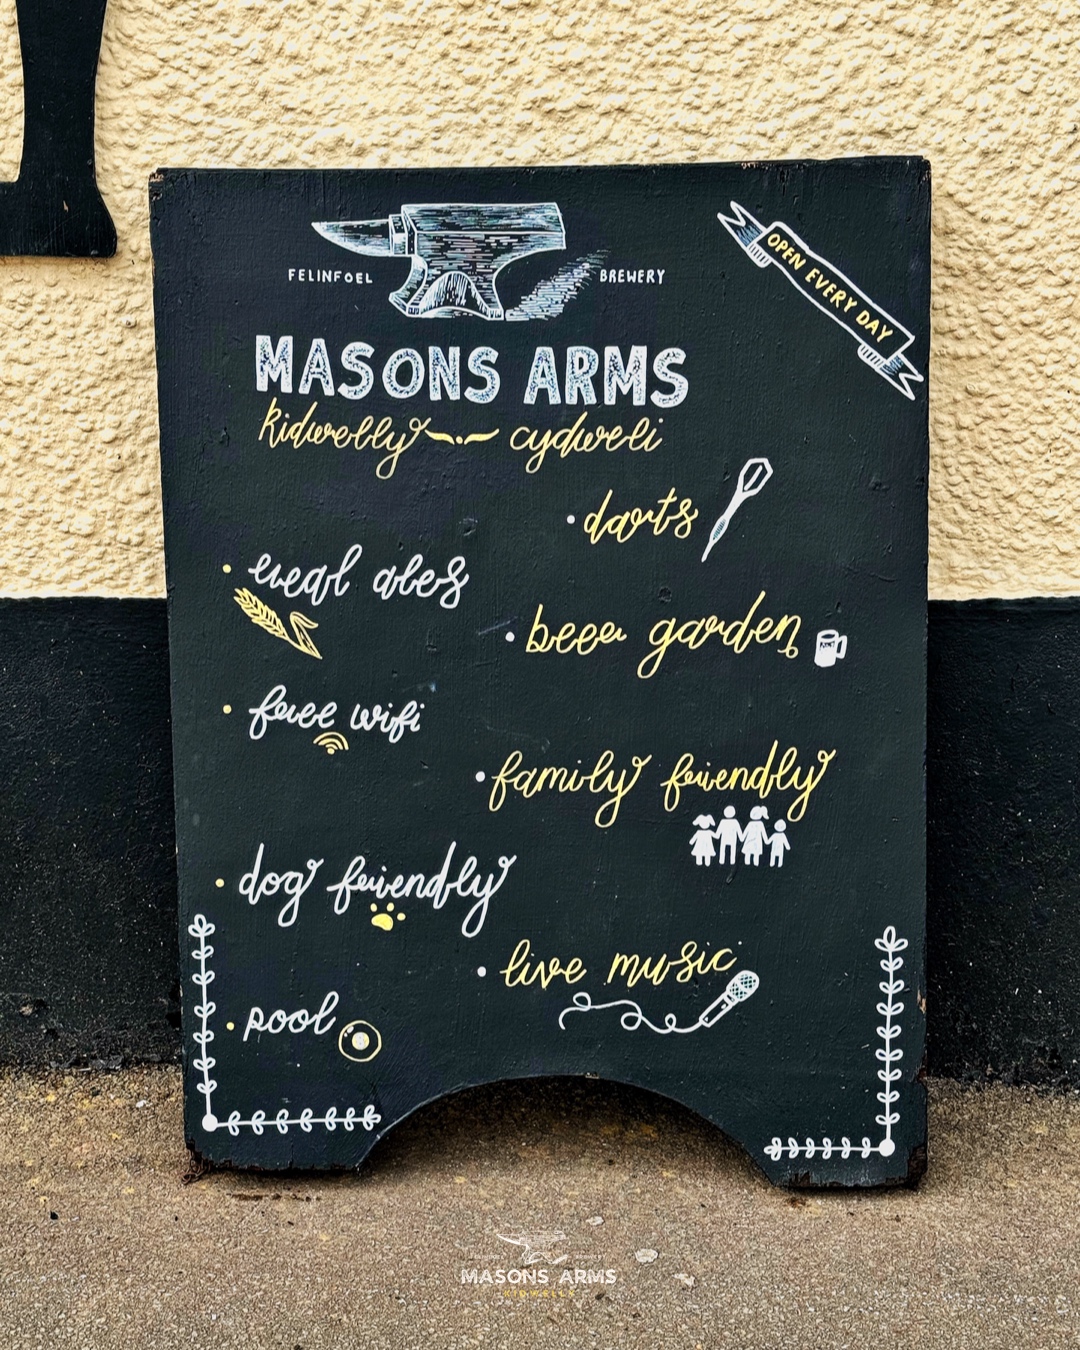 FELINFOEL BREWERY
OPEN EVERY DAY
MASONS ARMS
kidwelly cydweli
darts
real ales
beer garden
free wifi
family friendly
dog friendly
live music
pool
MASONS ARMS
KIDWELLY